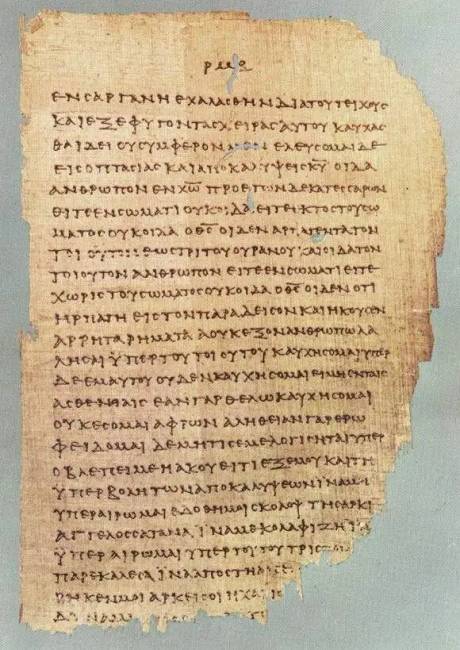 ΕΝϹΑΡΓΑΝΗΕΧΑΛΑϹΘΗΝΔΙΑΤΟΥΤΕΙΧΟΥϹ
ΚΑΙΕΞΕΦΥΓΟΝΤΑϹΧΕΙΡΑϹΑΥΤΟΥΚΑΥΧΑϹ
ΘΑΙΔΕΙΟΥϹΥΜΦΕΡΟΝΜΕΝΕΛΕΥϹΟΜΑΙΔΕ
ΕΙϹΟΠΤΑϹΙΑϹΚΑΙΑΠΟΚΑΛΥΨΕΙϹΚ̅Υ̅ΟΙΔΑ
ΑΝΘΡΩΠΟΝΕΝΧ̅Ω̅ΠΡΟΕΤΩΝΔΕΚΑΤΕϹϹΑΡΩΝ
ΕΙΤΕΕΝϹΩΜΑΤΙΟΥΚΟΙΔΑΕΙΤΕΕΚΤΟϹΤΟΥϹΩ
ΜΑΤΟϹΟΥΚΟΙΔΑΟΘ̅Ϲ̅ΟΙΔΕΝΑΡΠΑΓΕΝΤΑΤΟΝ
ΤΟΙΟΥΤΟΝΕΩϹΤΡΙΤΟΥΟΥΡΑΝΟΥΚΑΙΟΙΔΑΤΟΝ
ΤΟΙΟΥΤΟΝΑΝΘΡΩΠΟΝΕΙΤΕΕΝϹΩΜΑΤΙΕΙΤΕ
ΧΩΡΙϹΤΟΥϹΩΜΑΤΟϹΟΥΚΟΙΔΑΟΘ̅Ϲ̅ΟΙΔΕΝΟΤΙ
ΗΡΠΑΓΗΕΙϹΤΟΝΠΑΡΑΔΕΙϹΟΝΚΑΙΗΚΟΥϹΕΝ
ΑΡΡΗΤΑΡΗΜΑΤΑΑΟΥΚΕΞΟΝΑΝΘΡΩΠΩΛΑ
ΛΗϹΑΙΫΠΕΡΤΟΥΤΟΙΟΥΤΟΥΚΑΥΧΗϹΟΜΑΙΥΠΕΡ
ΔΕΕΜΑΥΤΟΥΟΥΔΕΝΚΑΥΧΗϹΟΜΑΙΕΙΜΗΕΝΤΑΙϹ
ΑϹΘΕΝΕΙΑΙϹΕΑΝΓΑΡΘΕΛΩΚΑΥΧΗϹΟΜΑΙ
ΟΥΚΕϹΟΜΑΙΑΦΡΩΝΑΛΗΘΕΙΑΝΓΑΡΕΡΩ
ΦΕΙΔΟΜΑΙΔΕΜΗΤΙϹΕΜΕΛΟΓΙϹΗΤΑΙΥΠΕΡ
ΟΒΛΕΠΕΙΜΕΗΑΚΟΥΕΙΤΙΕΞΕΜΟΥΚΑΙΤΗ
ΫΠΕΡΒΟΛΗΤΩΝΑΠΟΚΑΛΥΨΕΩΝΪΝΑΜΗ
ΥΠΕΡΑΙΡΩΜΑΙΕΔΟΘΗΜΟΙϹΚΟΛΟΨΤΗϹΑΡΚΙ
ΑΓΓΕΛΟϹϹΑΤΑΝΑΪΝΑΜΕΚΟΛΑΦΙΖΗΪΝ
ΫΠΕΡΑΙΡΩΜΑΙΥΠΕΡΤΟΥΤΟΥΤΡΙϹ
ΠΑΡΕΚΑΛΕϹΑΪΝΑΑΠΟϹΤΗ
ΡΗΚΕΝΜΟΙΑΡΚΕΙϹΟΙΗΧΑΡΙϹ